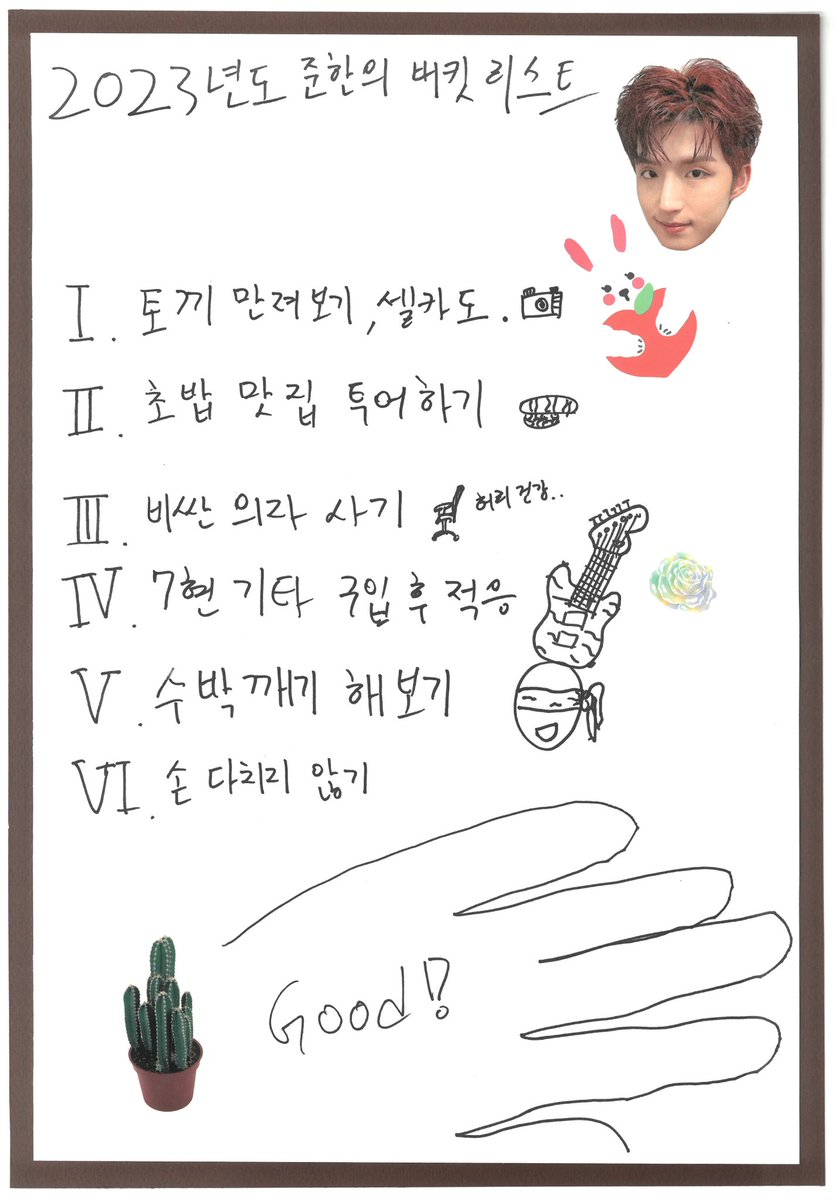 2023년도 준한의 버킷리스트
I. 토끼 만려보기, 셀카도.
II. 초밥 맛집 투어하기
III. 비싼 의자 사기 허리건강..
IV. 7현 기타 구입 후 적응
V. 수박깨기 해보기
VI. 손 다치지 않기
Good!?